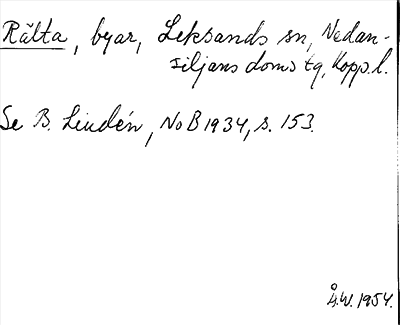 Rälta, byar, Leksands sn, Nedan-
siljans doms tg, Kopp. l.
Se B. Lindén, NoB 1934, s. 153.
Å.W. 1954.